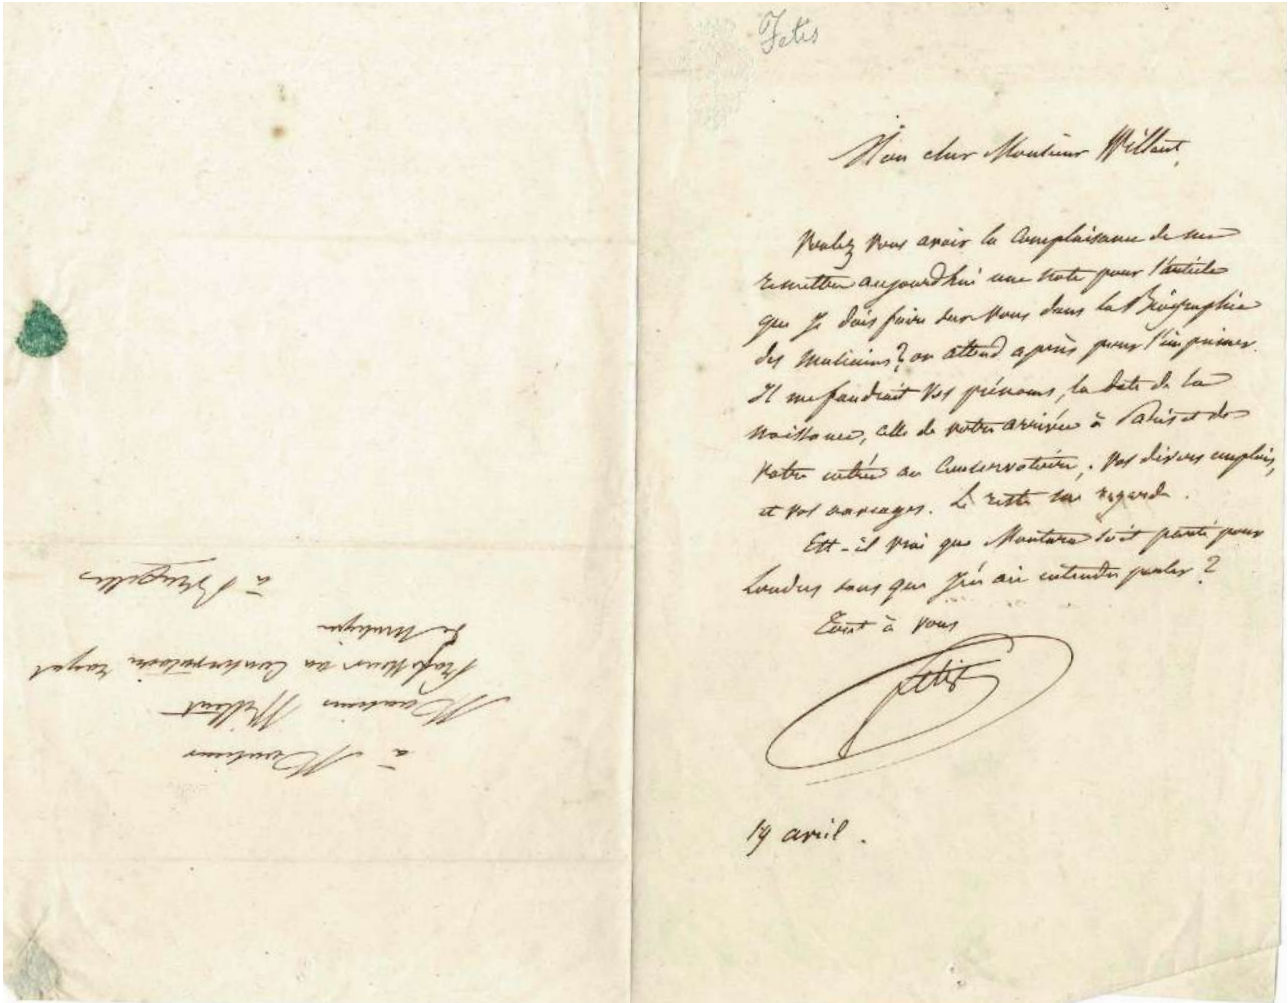 Fetis
Mon cher Monsieur Willent,
Voulez vous avoir la complaisance de me
remettre aujourd'hui une note pour l'article
que je dois faire sur vous dans la Biographie
des musiciens? on attend après pour l'imprimer.
Il me faudrait vos prénoms, la date de la
naissance, celle de votre arrivée à Paris et de
votre entrée au Conservatoire, vos divers emplois,
et vos ouvrages. Le reste me regarde.
Est-il vrai que soit parti pour
Londres sans que j'en aie entendu parler?
Tout à vous
Fetis
19 avril.
à Monsieur
Monsieur Willent
Professeur au Conservatoire royal
de Musique
à Bruxelles